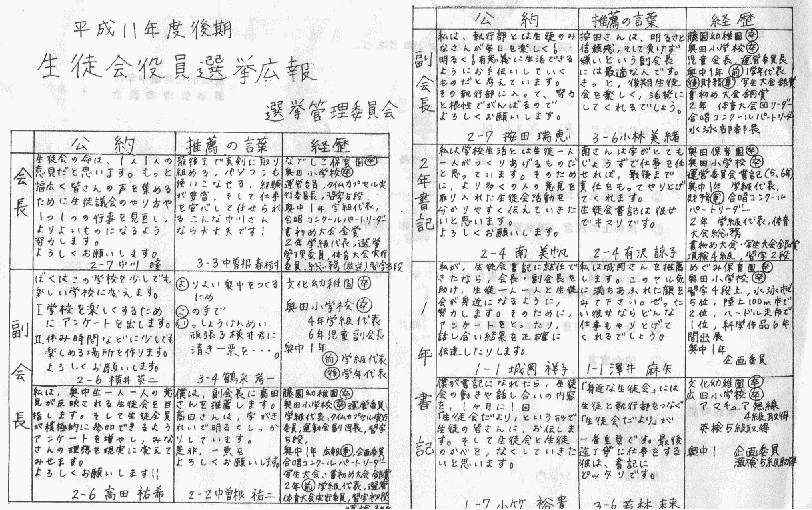 平成11年度後期
生徒会役員選挙広報
選挙管理委員会
公約
推薦の言葉
経歴
会長
生徒会の命は、1人1人の
意見だと思います。もっと
幅広く皆さんの声を集める
ために生徒会のやり方や
1つ1つの行事を見直し、
よりよいものになるよう
努力します。
よろしくお願いします。
2-7 中川
最後まで真剣に取り
組める。パソコンも
使いこなせる。経験
が豊富。そして仕事
を安心して任せられ
る。こんな中川さん
なら大丈夫です!
3-3 中曽根
なでしこ保育園(卒)
奥田小学校(卒)
2年学級代表、選挙
副会長
ぼくはこの学校を少しでも
楽しい学校にします。
I 学校を楽しくするため
にアンケートを出します。
II 休み時間などに少しでも
楽しめる場所を作ります。
よろしくお願いします。
2-6 横井 英二
よりよい奥中をつくる
ため
この手で
いっしょうけんめい
頑張る横井君に
清き一票を…。
3-4 鶴永
文化幼稚園(卒)
奥田小学校(卒)
4年学級代表
6年児童副会長
奥中1年
(前)学級代表
(後)学年代表
私は、奥中生一人一人の意
見が反映される生徒会を目
指します。そして生徒会員
が積極的に参加できるよう
アンケートを増やし、みな
さんの理想を現実に変えて
みせます。
よろしくお願いします!!
2-6 高田 祐希
僕は、副会長に高田
さんを推薦します。
高田さんは、字がき
れいで明るくしっか
りしています。
是非、一票を
よろしくお願いします。
2-2 中曽根 祐二
藤園幼稚園(卒)
奥田小学校(卒)運営委員
公約
推薦の言葉
経歴
副会長
私は、執行部とは生徒のみ
なさんが毎日を楽しく!
明るく!有意義に生活できる
ようにお手伝いしていく
ものだと考えています。
その執行部に入って、努力
と根性でがんばるので
よろしくお願いします。
2-7 按田 瑞恵
按田さんは、明るさと
信頼感、そして負けず
嫌いという副会長
には最適な人です。
きっと、後期生徒
会を楽しく、活発に
してくれるでしょう。
3-6 小林 美緒
藤園幼稚園(卒)
奥田小学校(卒)
児童会長、運営委員長
奥中1年(前)学級代表
書初め大会銅賞
2年 体育大会団リーダー
合唱コンクールパートリーダー
水泳部部長
2年書記
私は学校生活とは生徒一人
一人がつくりあげるものだ
と思っています。そのため
に、より多くの人の意見を
取り入れた生徒会活動を
分かりやすく伝えていきた
いと思います。
よろしくお願いします。
2-4 南 美帆
南さんは字がとても
じょうずで仕事を任
せれば、最後まで
責任をもってやりとげ
てくれます。
生徒会書記は彼女
でキマリです。
2-4 有沢 諒子
奥田保育園(卒)
奥田小学校(卒)
運営委員会書記(5,6年)
奥中1年 学級代表、
合唱コンクール
パートリーダー
2年 学級代表、体育大
会総務
1年書記
私が、生徒会書記に就任で
きたなら、会長・副会長を
助け、生徒一人一人と生徒
会が身近になるように、
努力します。そのために、
アンケートをとったり、
話し合い結果を正確に
伝達したりします。
1-1 城岡 祥子
私は城岡さんを推薦
します。このヤル気
に満ちあふれた顔を
みて下さい。ぜった
い彼女ならどんな
仕事もやりとげて
くれるでしょう。
1-1 澤井 麻矢
めぐみ保育園(卒)
奥田小学校(卒)
習字4段、水泳市
5位、陸上100m市で
2位、ハードル走市で
1位、科学作品6年
間出展
奥中1年
企画委員
僕が書記になれたら、生徒
会の動きや話し合いの内容
を、1ヶ月に1回
「生徒会だより」という形で
生徒の皆さんに、お伝えしま
す。そして生徒会と生徒
のかべを、なくしていきた
いと思います。
1-7 小竹 裕貴
「身近な生徒会」には
生徒と執行部をつなぐ
「生徒会だより」が
一番重要です。最後
迄丁寧に仕事をする
彼は、書記に
ピッタリです。
3-6 若林 未来
文化幼稚園(卒)
広田小学校(卒)
アマチュア無線
4級取得
英検5級取得
奥中1
企画委員
漢検5級取得